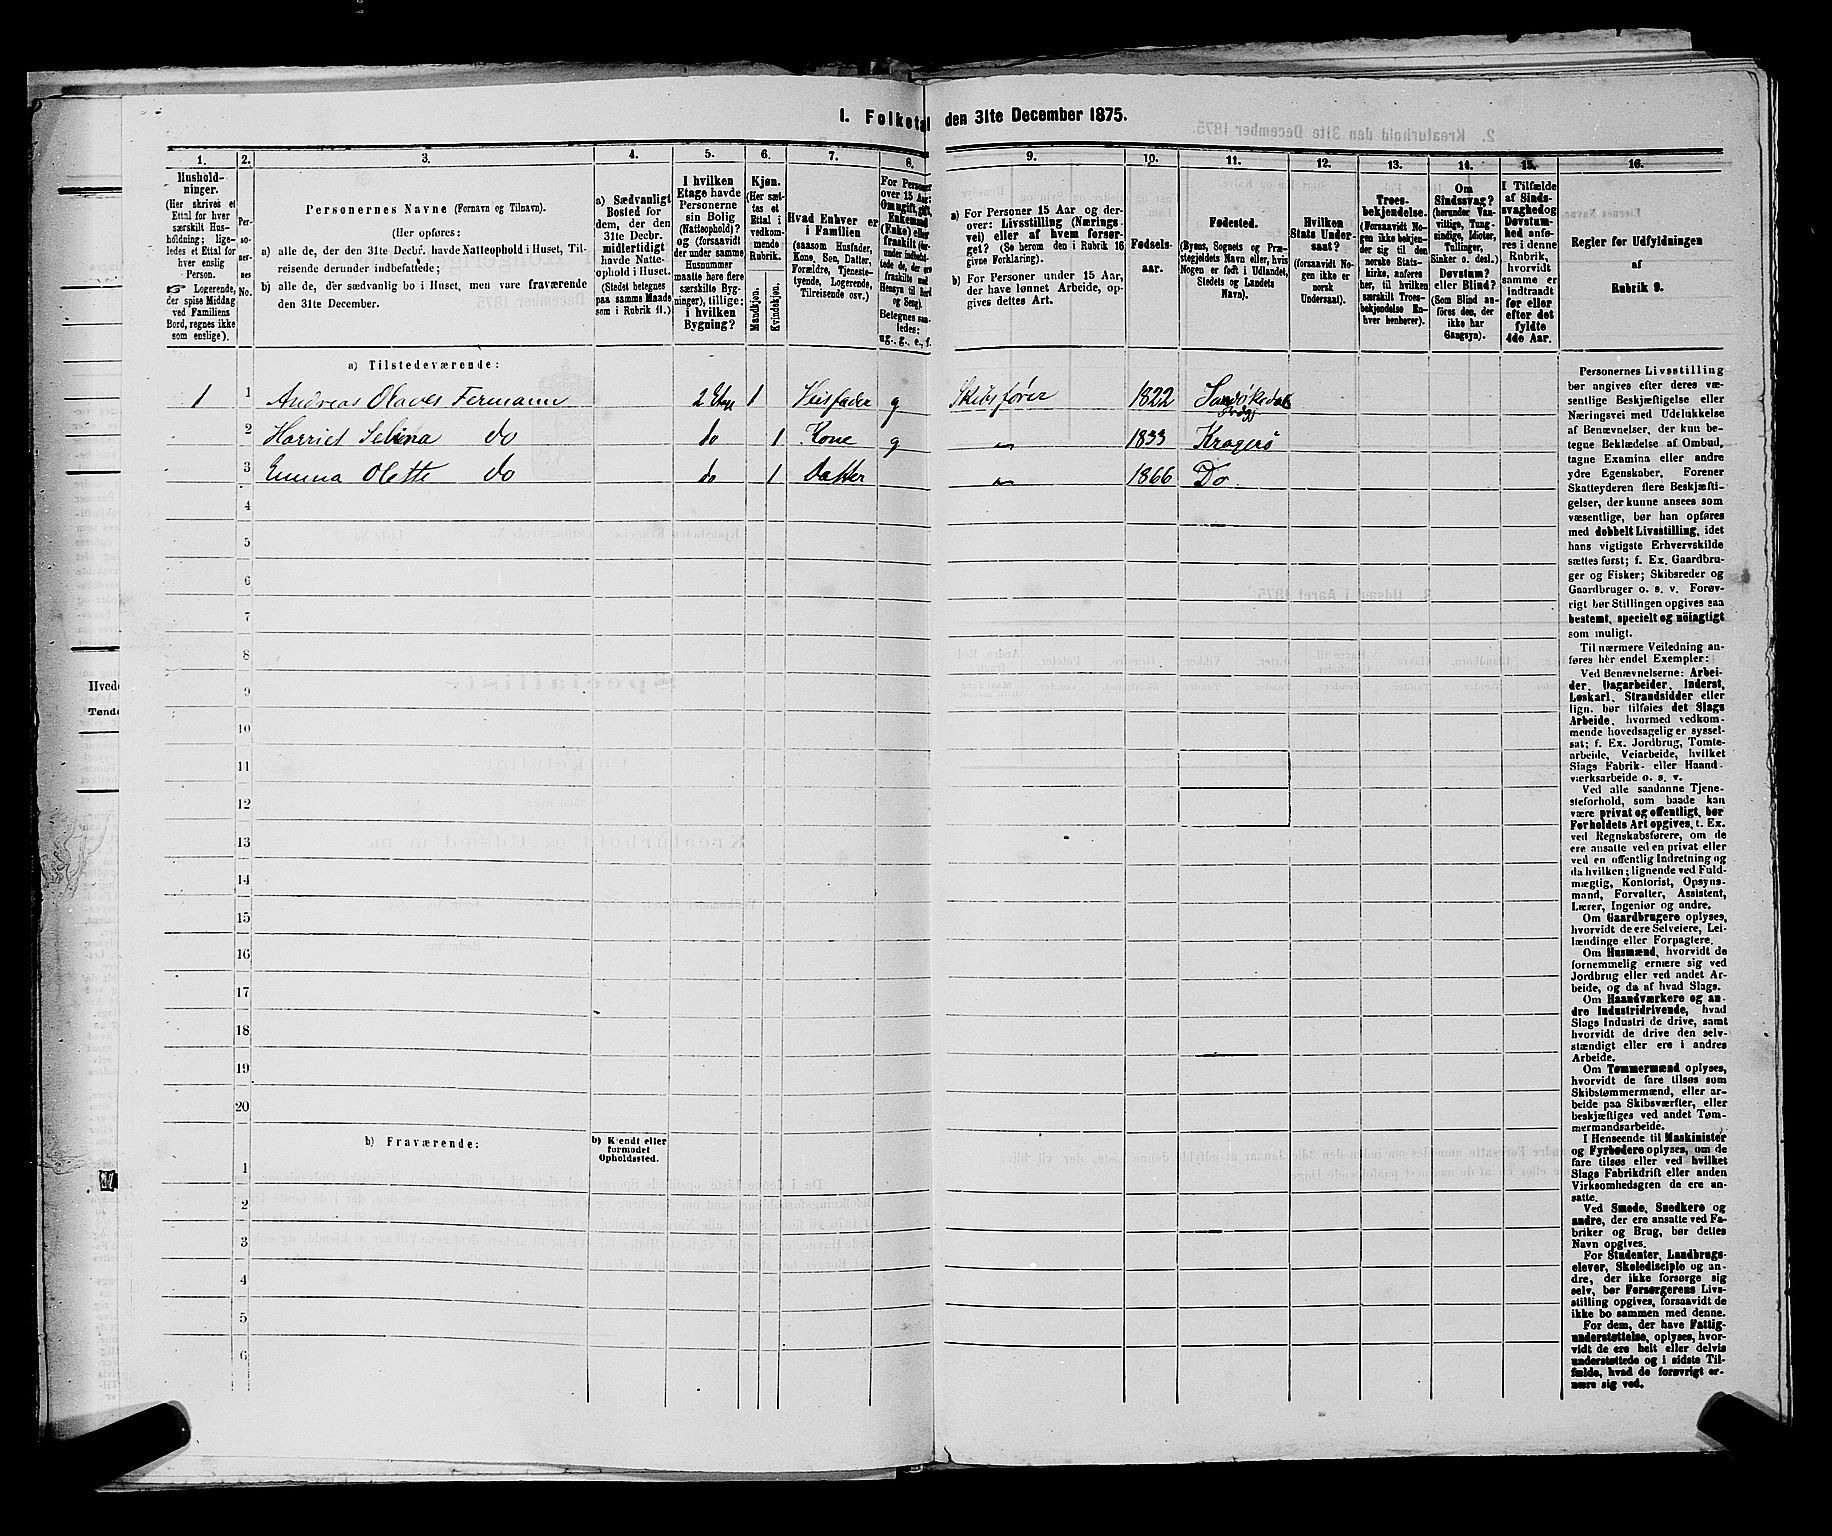 1. Folketal den 31te December 1875.
1. 2. 3. 4. 5. 6. 7. 8. 9. 10. 11. 12. 13. 14. 15. 16.
Hushold-
ninger.
(Her skrives et
Ettal for hver
særskilt Hus-
holdning; lige-
ledes et Ettal
for hver enslig
Person.
Logerende,
der spise Middag
ved Familiens
Bord, regnes ikke
som enslige).
Per-
so-
ner-
nes
No.
Personernes Navne (Fornavn og Tilnavn).
(Her opføres:
a) alle de, der den 31te Decbr. havde Natteophold i Huset, Til-
reisende derunder indbefattede;
b) alle de, der sædvanlig bo i Huset, men vare fraværende
den 31te December.
a) Sædvanligt
Bosted for
dem, der den
31te Decbr.
midlertidigt
havde Natte-
ophold i Huset.
(Stedet betegnes
paa samme Maade
som i Rubrik 11.)
I hvilken
Etage havde
Personerne
sin Bolig
(Natteophold)?
og (forsaavidt
der under samme
Husnummer
maatte høre flere
særskilte Byg-
ninger), tillige:
i hvilken
Bygning?
Kjøn.
(Her sæt-
tes et
Ettal i
vedkom-
mende
Rubrik.
Mandkjøn.
Kvindekjøn.
Hvad Enhver er
i Familien
(saasom Husfader,
Kone, Søn, Datter,
Forældre, Tjeneste-
tyende, Logerende,
Tilreisende osv.)
a) For Personer 15 Aar og der-
over: Livsstilling (Nærings
vei) eller af hvem forsør-
get? (Se herom den i Rubrik 16
givne Forklaring).
b) For Personer under 15 Aar,
der have lønnet Arbeide, op-
gives dettes Art.
Fødsels-
aar.
Fødested.
(Byens, Sognets og Præ-
stegjeldets Navn eller, hvis
Nogen er født i Udlandet,
Stedets og Landets
Navn).
Hvilken
Stats Under-
saat?
(forsaavidt No-
gen ikke er
norsk
Undersaat).
Troes-
bekjendelse.
(Forsaavidt No-
gen ikke bekjen-
der sig til den
norske Stats-
kirke, anføres
her, til hvilken
særskilt Troes-
bekjendelse En-
hver henhører).
Om
Sindssvag?
(herunder Van-
vittige, Tung-
sindige, Idioter,
Tullinger,
Sinker o. desl.)
Døvstum?
eller Blind?
(Som Blind an-
føres den, der
ikke har
Gangsyn).
I Tilfælde
af Sinds-
svaghed og
Døvstum-
hed anfø-
res i denne
Rubrik,
hvorvidt
samme er
indtraadt
før eller
efter det
fyldte
4de Aar.
Regler for Udfyldningen
af
Rubrik 9.
a) Tilstedeværende:
1 1 Andreas Olaves Fermann 2 Etage 1 Husfader g Skibsfører 1822 Sandøkedal
2 Harriet Selina do do 1 Kone g " 1833 Kragerø
3 Emma Olette do do 1 Datter " 1866 Do
4
5
6
7
8
9
10
11
12
13
14
15
16
17
18
19
20
b) Fraværende:
b) Kjendt eller
formodet
Opholdssted.
1
2
3
4
5
6
Personernes Livsstilling
bør angives efter deres væ-
sentlige Beskjæftigelse eller
Næringsvei med Udelukkelse
af Benævnelser, der kun be-
tegne Beklædelse af Ombud,
tagne Examina eller andre
ydre Egenskaber. Forener
Skatteyderen flere Beskjæfti-
gelser, der kunne ansees som
væsentlige, bør han opføres
med dobbelt Livsstilling, idet
hans vigtigste Erhvervskilde
sættes først; f. Ex. Gaardbru-
ger og Fisker; Skibsreder og
Gaardbruger o. s. v. Forøv-
rigt bør Stillingen opgives saa
bestemt, specielt og nöiagtigt
som muligt.
Til nærmere Veiledning an-
føres her endel Exempler:
Ved Benævnelserne: Arbei-
der, Dagarbeider, Inderst,
Løskarl, Strandsidder eller
lign. bør tilføies det Slags
Arbeide, hvormed vedkom-
mende hovedsagelig er syssel-
sat; f. Ex. Jordbrug, Tomte-
arbeide, Veiarbeide, hvilket
Slags Fabrik- eller Haand-
værksarbeide o. s. v.
Ved alle saadanne Tjene-
steforhold, som baade kan
være privat og offentligt, bør
Forholdets Art opgives, t. Ex.
ved Regnskabsførere, om de
ere ansatte ved en privat eller
ved en offentlig Indretning og
da hvilken; lignende ved Fuld-
mægtig, Kontorist, Opsyns-
mand, Forvalter, Assistent,
Lærer, Ingeniør og andre.
Om Gaardbrugere oplyses,
hvorvidt de ere Selveiere, Lei-
lændinge eller Forpagtere.
Om Husmænd, hvorvidt de
fornemmelig ernære sig ved
Jordbrug eller ved andet Ar-
beide, og da af hvad Slags.
Om Haandværkere og an-
dre Industridrivende, hvad
Slags Industri de drive, samt
hvorvidt de drive den selv-
stændigt eller ere i andres
Arbeide.
Om Tømmermænd oplyses,
hvorvidt de fare tilsøs som
Skibstømmermænd, eller ar-
beide paa Skibsværfter, eller
beskjæftiges ved andet Tøm-
mermandsarbeide.
I Henseende til Maskinister
og Fyrbødere oplyses, om de
fare tilsøs eller ved hvilket
Slags Fabrikdrift eller anden
Virksomhedsgren de ere an-
satte.
Ved Smede, Snedkere og
andre, der ere ansatte ved Fa-
briker og Brug, bør dettes
Navn opgives.
For Studenter, Landbrugs-
elever, Skoledisciple og an-
dre, der ikke forsørge sig
selv, bør Forsørgerens Livs-
stilling opgives, forsaavidt de
ikke bo sammen med denne.
For dem, der have Fattig-
understøttelse, oplyses, hvor-
vidt de ere helt eller delvis
understøttede og i sidste Til-
fælde, hvad de forøvrigt er-
nære sig ved.